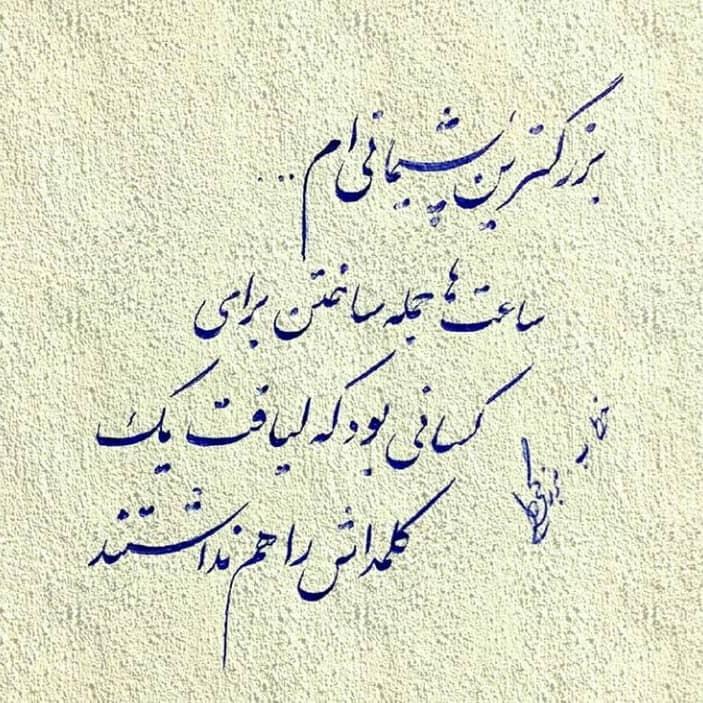 بزرگترین پشیمانی ام ...
ساعت ها جمله ساختن برای
کسانی بود که لیاقت یک
کلمه اش را هم نداشتند